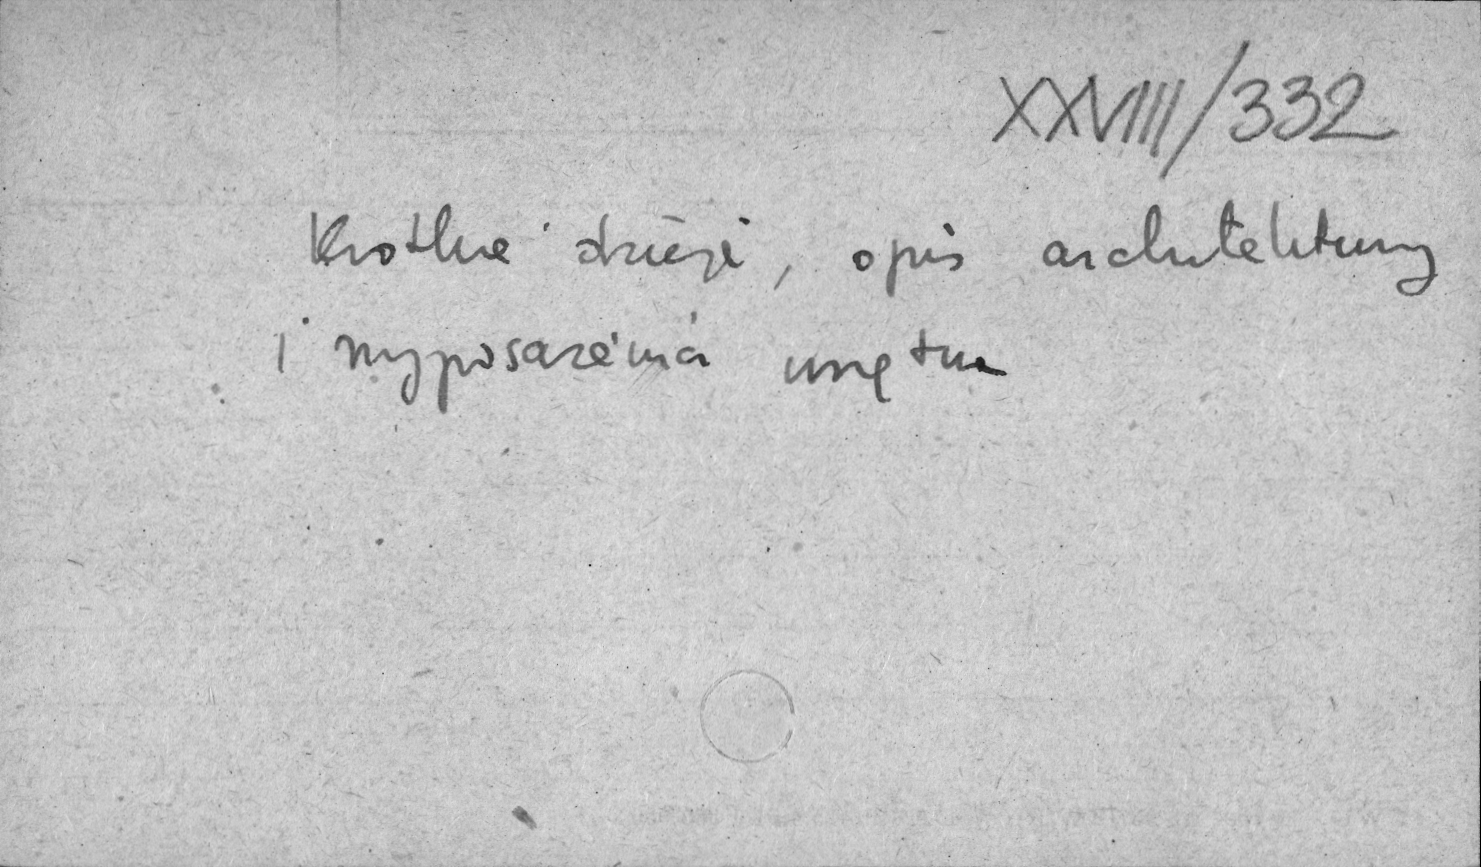 XXVIII/332
Krótkie dzieje, opis architektury
i wyposażenia wnętrza